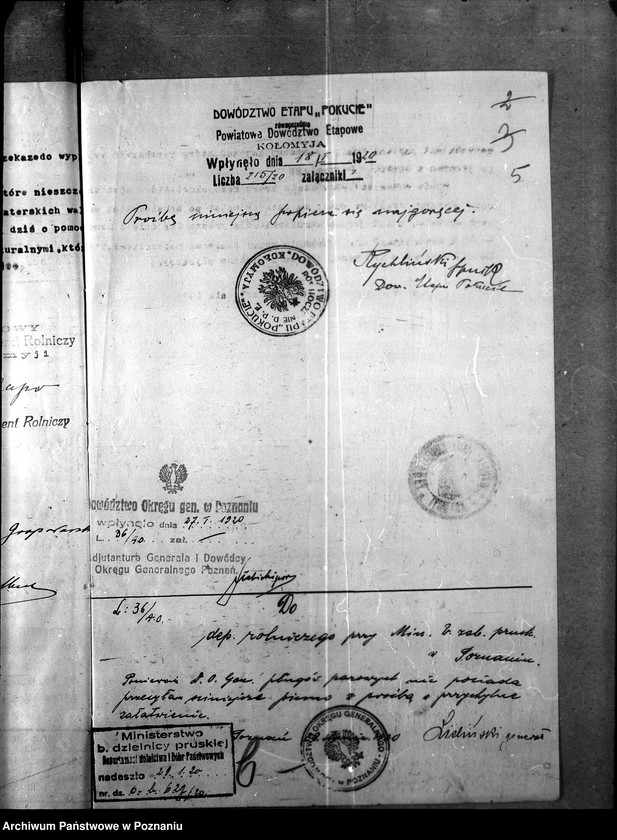 2
3
5
DOWÓDZTWO ETAPU „POKUCIE"
równocześnie
Powiatowe Dowództwo Etapowe
KOŁOMYJA
Wpłynęło dnia 18/I 1920
Liczba 215/20 załączniki
Prośbę niniejszą popiera się najgoręcej.
Rychliński
Dow. Etapu Pokucie
DOWÓDZTWO ETAPU „POKUCIE" KOŁOMYJA
zekazedo wyp
tóre nieszczę
aterskich wal
dziś o pomoc
uralnymi,któ
OWY
Rolniczy
myji
ent Rolniczy
Dowództwo Okręgu gen. w Poznaniu
wpłynęło dnia 27.I.1920
L. 36/40. zał. —
Adjutantura Generała i Dowódcy
Okręgu Generalnego Poznań.
L: 36/40.
Do
dep. rolniczego przy Min. b. zab. prusk.
w Poznaniu.
Ponieważ D. O. Gen. pługów parowych nie posiada
przesyłam niniejsze pismo z prośbą o przychylne
załatwienie.
Poznań
generał
DOWÓDZTWO OKRĘGU GENERALNEGO W POZNANIU
Ministerstwo
b. dzielnicy pruskiej
Departament Rolnictwa i Dóbr Państwowych
nadeszło 29.1.20
nr. dz.
Archiwum Państwowe w Poznaniu